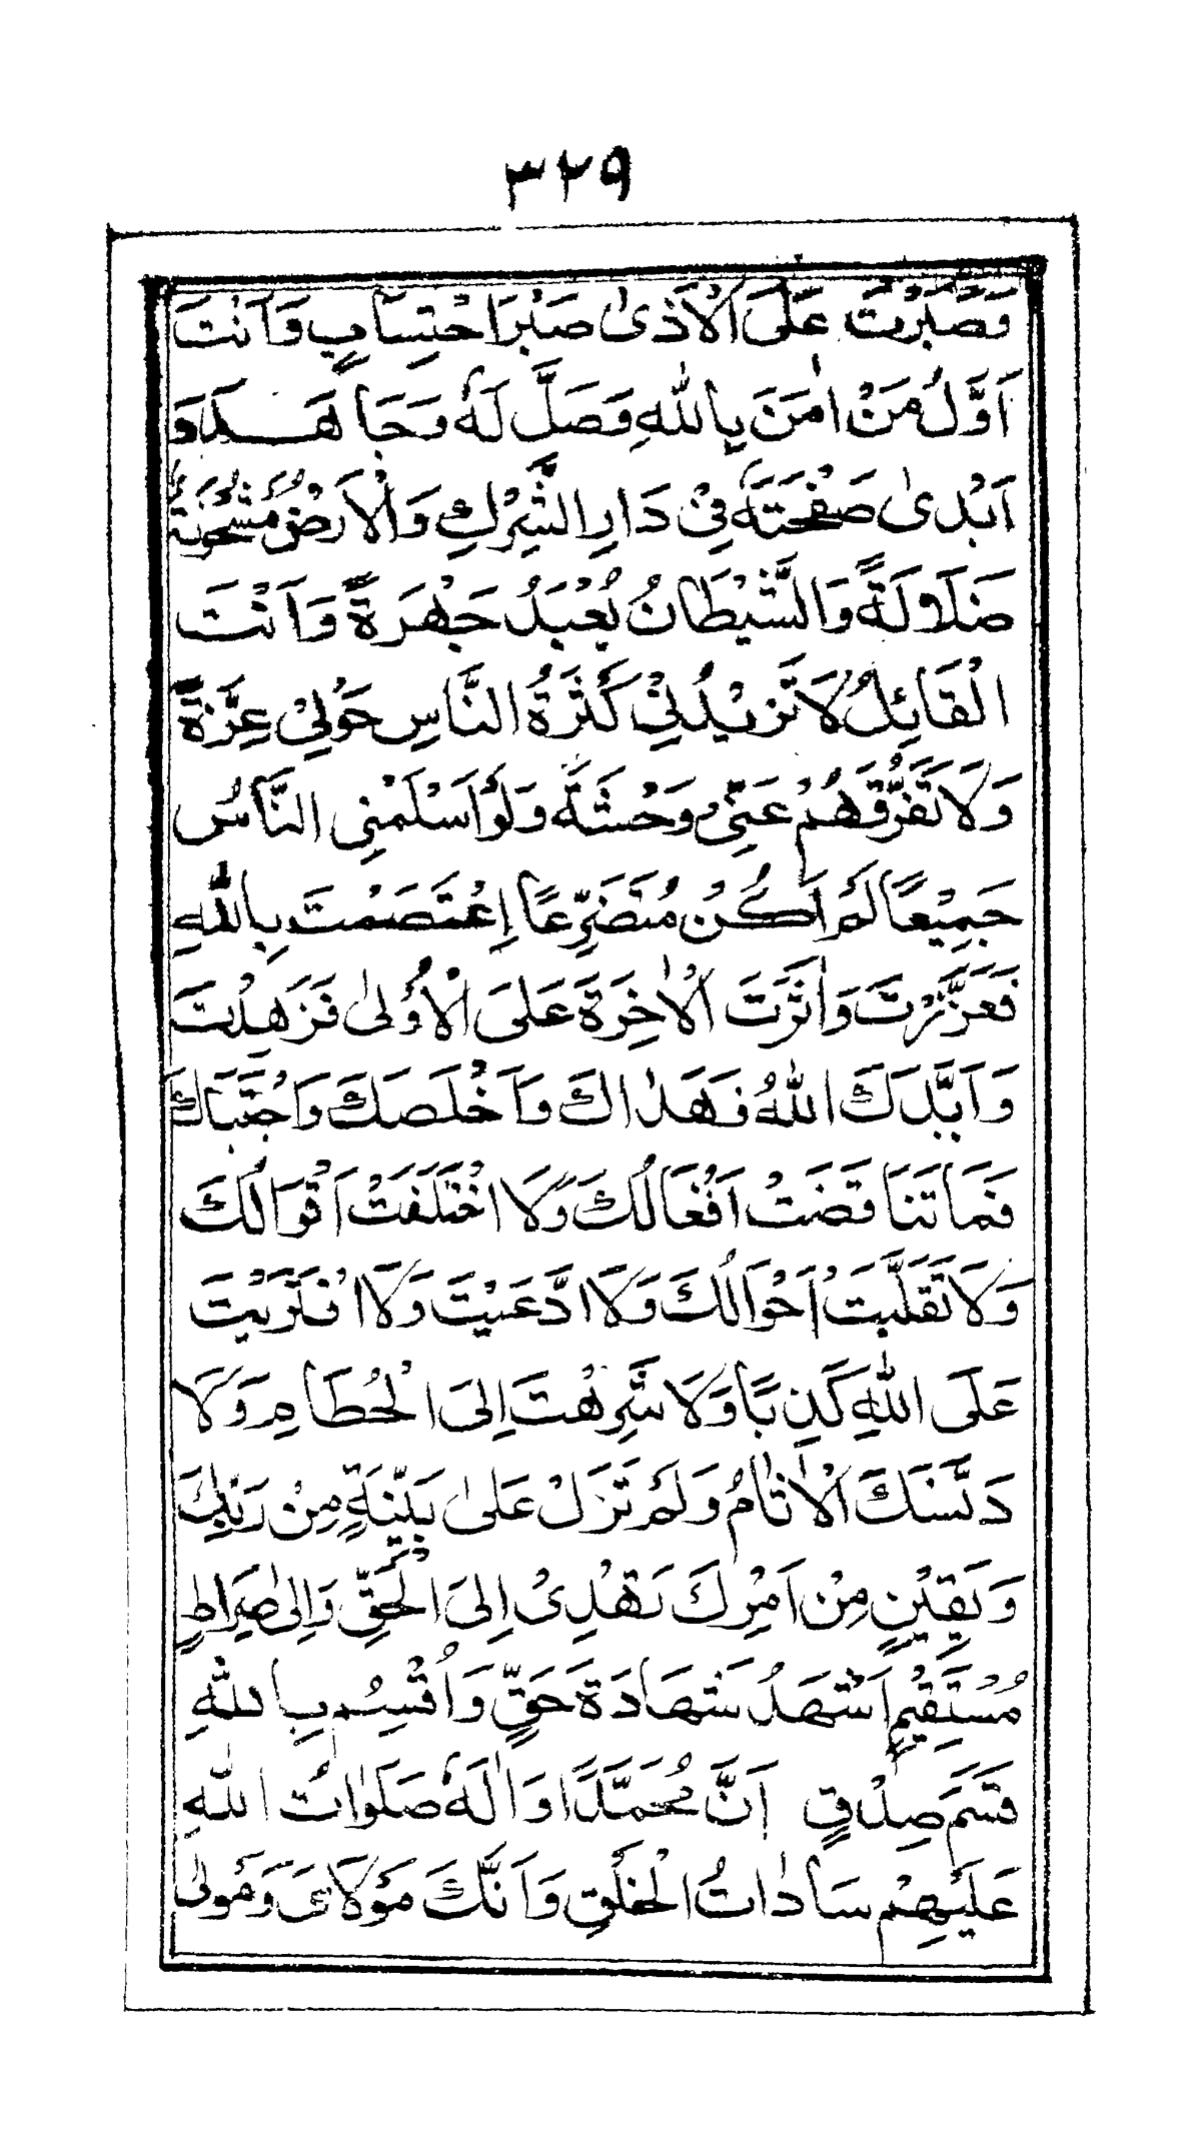 ٣٢٩
وَصَبَرْتَ عَلَى الْاَذىٰ صَبْرَ احْتِسَابٍ وَاَنْتَ
اَوَّلُ مَنْ اٰمَنَ بِاللّٰهِ وَصَلَّ لَهٗ وَجَاهَـــدَ وَ
اَبْدىٰ صَفْحَتَهٗ فِىْ دَارِ الشِّرْكِ وَالْاَرْضُ مَشْحُوْنَةٌ
ضَلَالَةً وَالشَّيْطَانُ يُعْبَدُ جَهْرَةً وَاَنْتَ
الْقَائِلُ لَا تَزِيْدُنِىْ كَثْرَةُ النَّاسِ حَوْلِىْ عِزَّةً
وَلَا تَفَرُّقُهُمْ عَنِّىْ وَحْشَةً وَلَوْ اَسْلَمَنِى النَّاسُ
جَمِيْعًا لَمْ اَكُنْ مُتَضَرِّعًا اِعْتَصَمْتَ بِاللّٰهِ
فَعَزَزْتَ وَاٰثَرْتَ الْاٰخِرَةَ عَلَى الْاُوْلىٰ فَزَهِدْتَ
وَاَيَّدَكَ اللّٰهُ فَهَدٰاكَ وَاَخْلَصَكَ وَاجْتَبَاكَ
فَمَا تَنَاقَضَتْ اَفْعَالُكَ وَلَا اخْتَلَفَتْ اَقْوَالُكَ
وَلَا تَقَلَّبَتْ اَحْوَالُكَ وَلَا ادَّعَيْتَ وَلَا افْتَرَيْتَ
عَلَى اللّٰهِ كَذِبًا وَلَا شَرِهْتَ اِلَى الْحُطَامِ وَلَا
دَنَّسَكَ الْاٰثَامُ وَلَمْ تَزَلْ عَلىٰ بَيِّنَةٍ مِنْ رَبِّكَ
وَيَقِيْنٍ مِنْ اَمْرِكَ تَهْدِىْ اِلَى الْحَقِّ وَاِلىٰ صِرَاطٍ
مُسْتَقِيْمٍ اَشْهَدُ شَهَادَةَ حَقٍّ وَاُقْسِمُ بِاللّٰهِ
قَسَمَ صِدْقٍ اَنَّ مُحَمَّدًا وَاٰلَهٗ صَلَوٰاتُ اللّٰهِ
عَلَيْهِمْ سَادٰاتُ الْخَلْقِ وَاَنَّكَ مَوْلَاىَ وَمَوْلىٰ